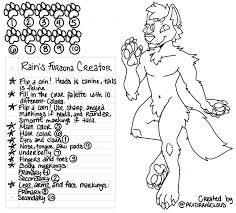 1 2 3 4 5
6 7 8 9 10
Rain's Fursona Creator
★ Flip a coin! Heads is canine, tails is feline.
★ Fill in the color palette with 10 different colors.
★ Flip a coin! Use sharp, angled markings if heads, and rounder, smooth markings if tails.
★ Main color ②
★ Hair color ⑥
★ Eyes and claws ①
★ Nose, tongue, paw pads ⑨
★ Underbelly ⑦
★ Fingers and toes ③
★ Body markings:
Primary ④
Secondary
★ Leg, arm, and face markings:
Primary ⑤
Secondary ⑩
Created by